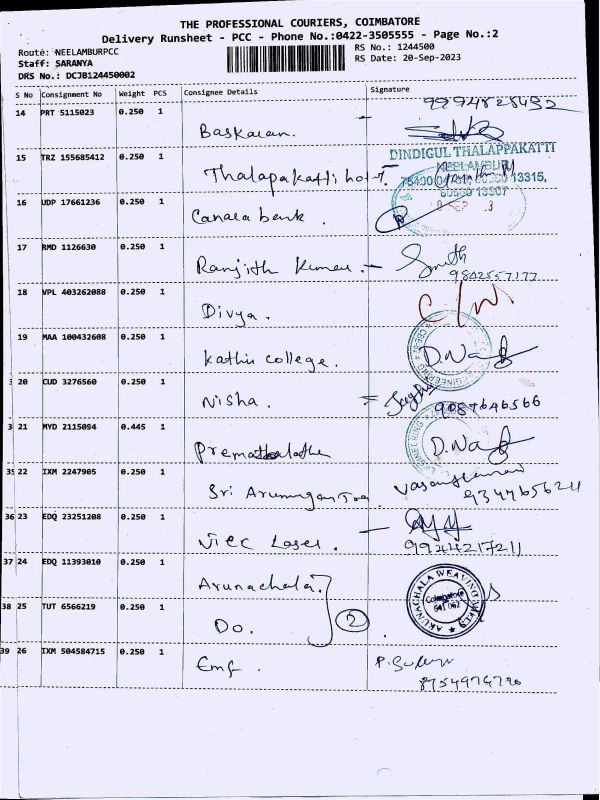 THE PROFESSIONAL COURIERS, COIMBATORE
Delivery Runsheet - PCC - Phone No.:0422-3505555 - Page No.:2
Route: NEELAMBURPCC
RS No.: 1244500
Staff: SARANYA
RS Date: 20-Sep-2023
DRS No.: DCJB124450002
S No Consignment No Weight PCS Consignee Details Signature
14 PRT 5115023 0.250 1 Baskaran.
15 TRZ 155685412 0.250 1 Thalapakatti hotel.
DINDIGUL THALAPPAKATTI
NEELAMBUR
16 UDP 17661236 0.250 1 Canara bank.
17 RMD 1126630 0.250 1 Ranjith Kumar - 9802557177
18 VPL 403262088 0.250 1 Divya.
19 MAA 100432608 0.250 1 Kathir college. D.Na
20 CUD 3276560 0.250 1 Nisha. 9087646566
21 MYD 2115094 0.445 1 D.Na
35 22 IXM 2247905 0.250 1 Sri Arumugan 9344656211
36 23 EDQ 23251208 0.250 1 Laser. 9944217211
37 24 EDQ 11393010 0.250 1 Arunachala
ARUNACHALA WEAVING MILLS
Coimbatore
641 062
38 25 TUT 6566219 0.250 1 Do. 2
39 26 IXM 504584715 0.250 1 Emf.
8754976796